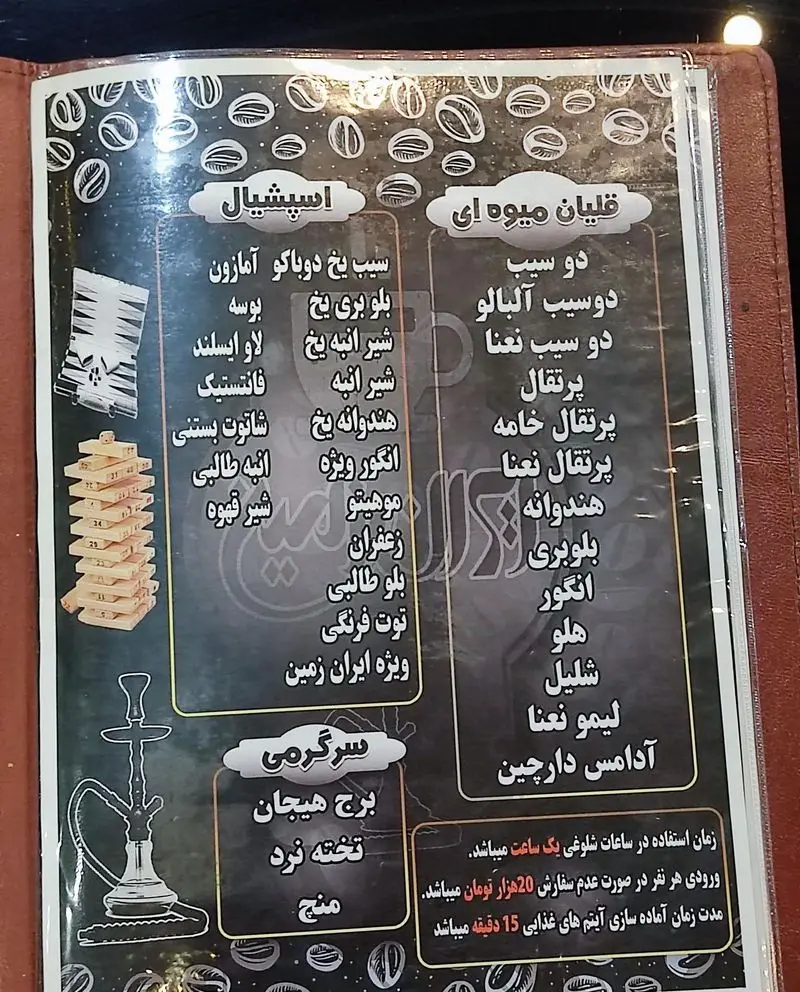 قلیان میوه ای
دو سیب
دوسیب آلبالو
دو سیب نعنا
پرتقال
پرتقال خامه
پرتقال نعنا
هندوانه
بلوبری
انگور
هلو
شلیل
لیمو نعنا
آدامس دارچین
اسپشیال
سیب یخ دوباکو آمازون
بلو بری یخ بوسه
شیر انبه یخ لاو ایسلند
شیر انبه فانتستیک
هندوانه یخ شاتوت بستنی
انگور ویژه انبه طالبی
موهیتو شیر قهوه
زعفران
بلو طالبی
توت فرنگی
ویژه ایران زمین
سرگرمی
برج هیجان
تخته نرد
منچ
زمان استفاده در ساعات شلوغی یک ساعت میباشد.
ورودی هر نفر در صورت عدم سفارش 20هزار تومان میباشد.
مدت زمان آماده سازی آیتم های غذایی 15 دقیقه میباشد